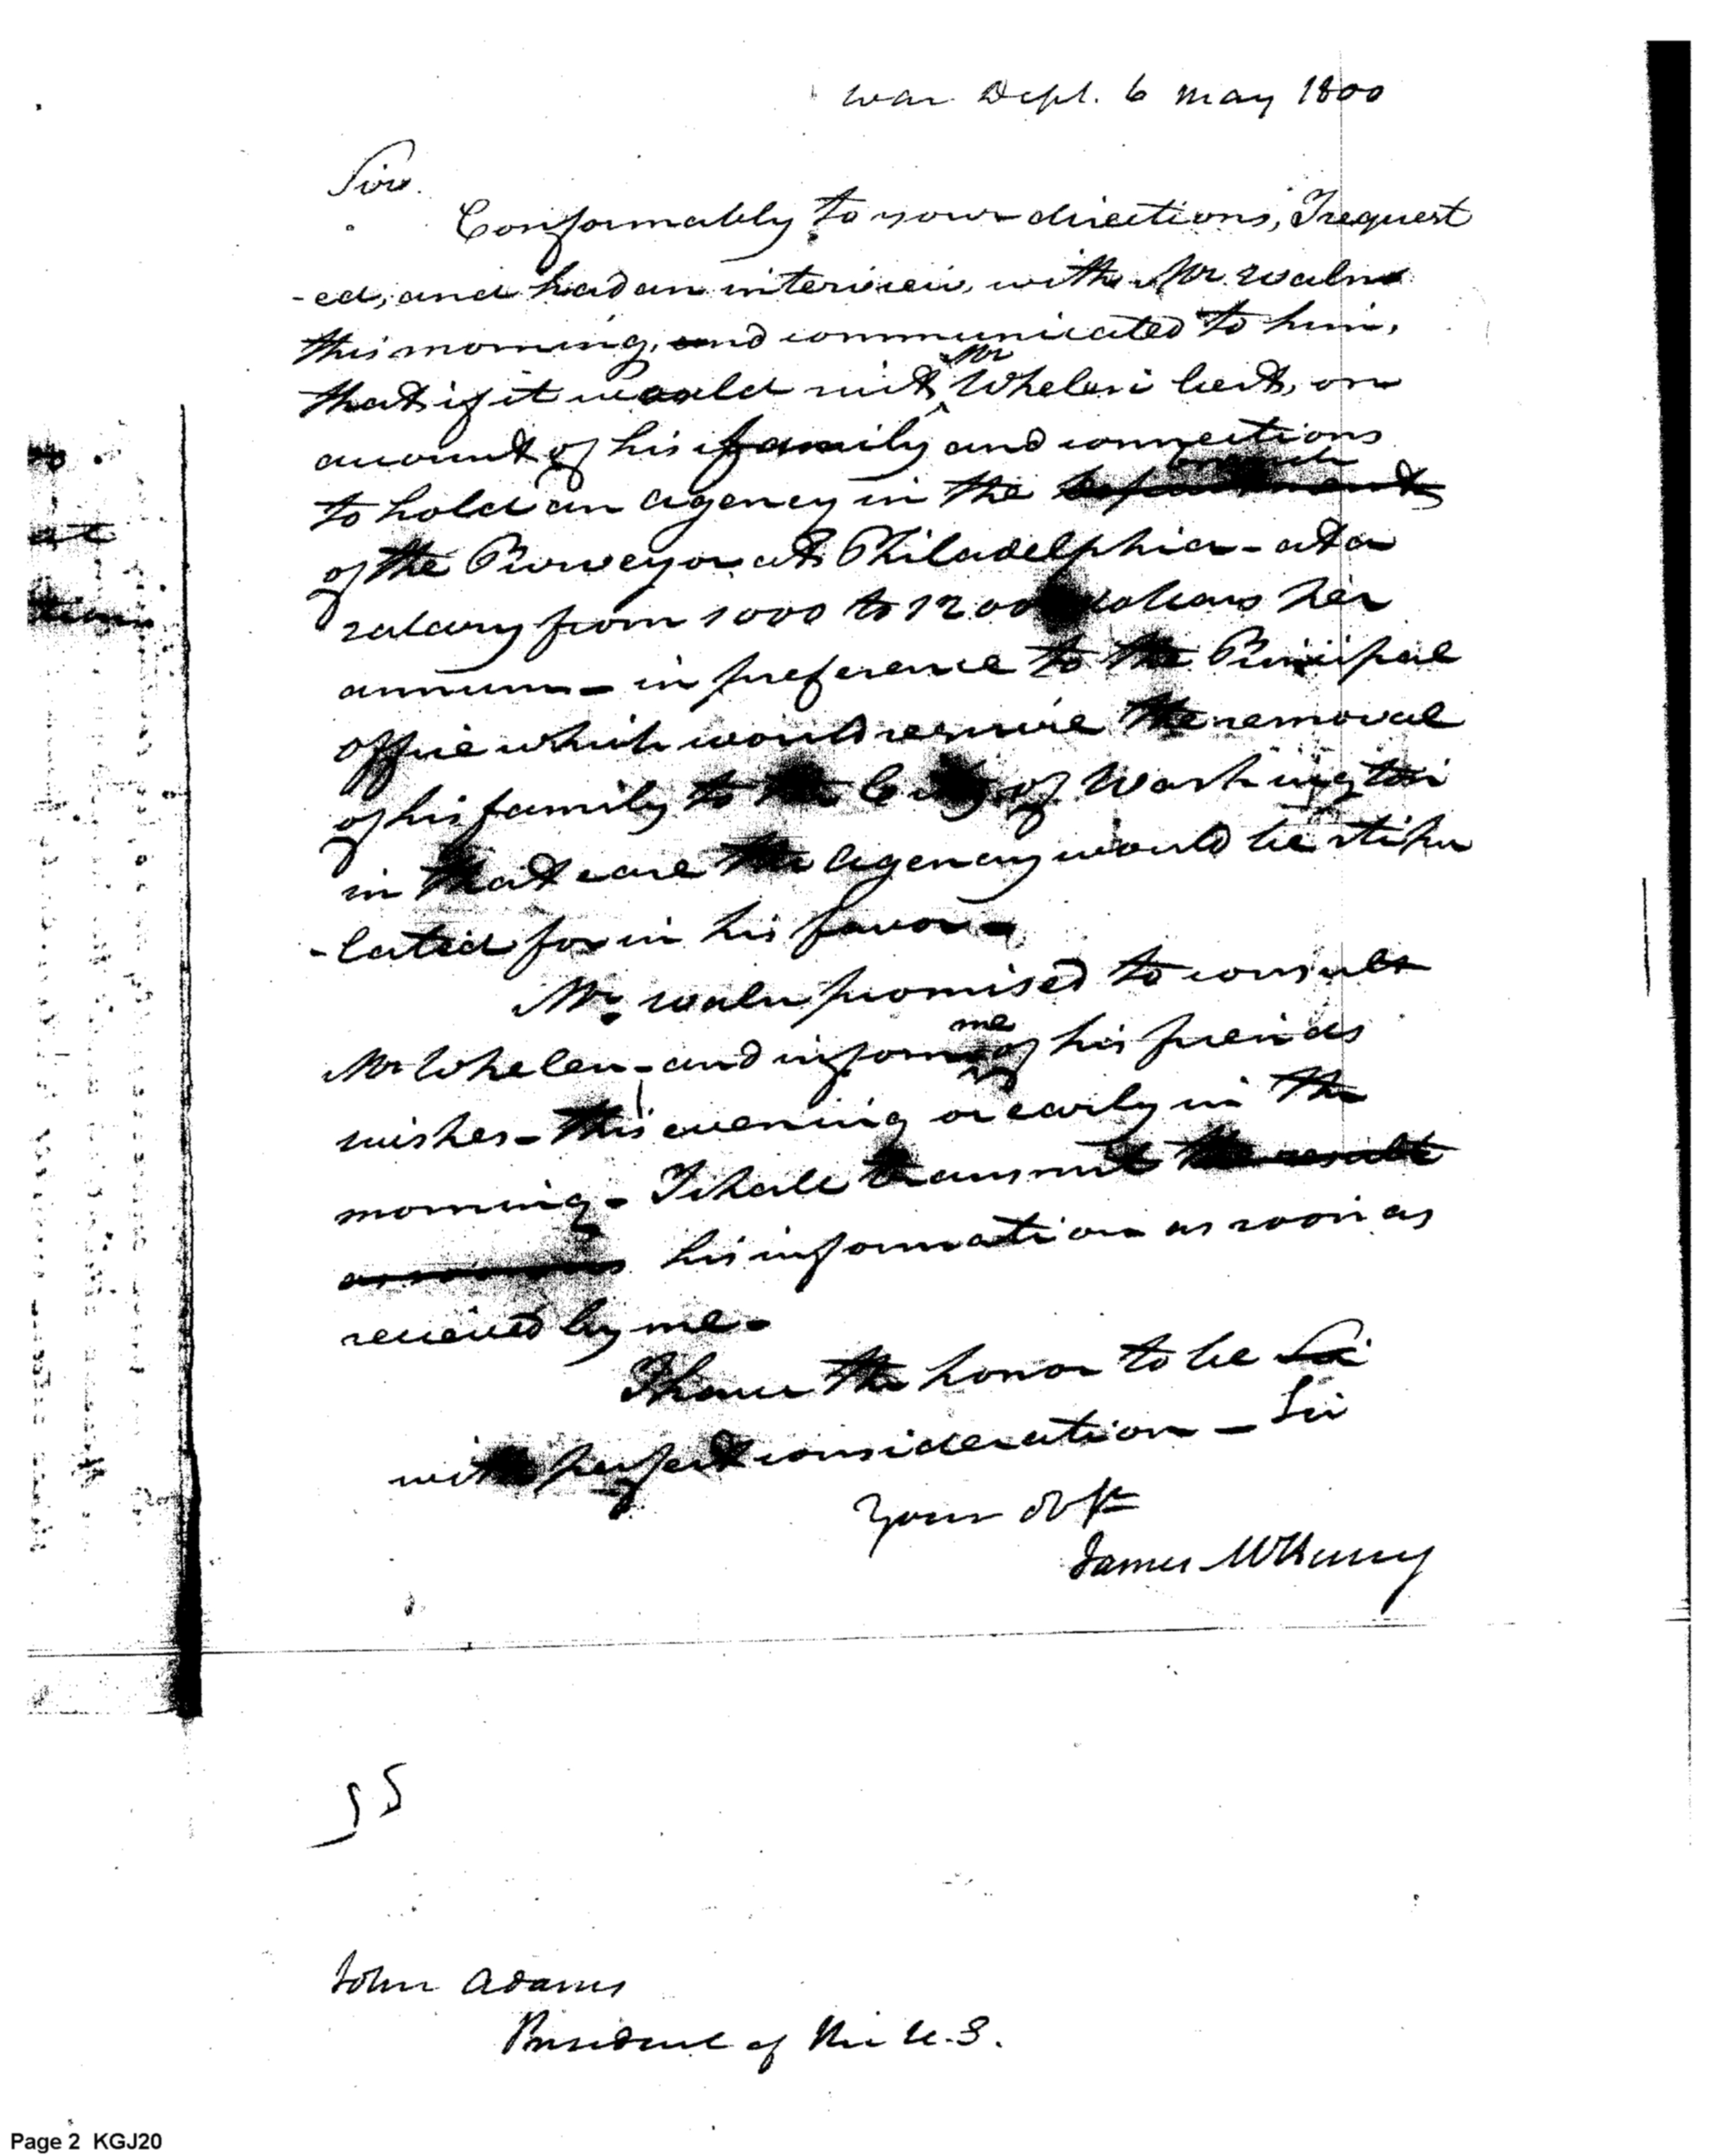 War Dept. 6 May 1800
Sir.
Conformably to your directions, I request
-ed, and had an interview, with Mr. Waln
this morning, and communicated to him,
that if it would suit Mr Whelen best, on
account of his family and connections
to hold an agency in the branch department
of the Purveyor at Philadelphia - at a
salary from 1000 to 1200 dollars per
annum - in preference to the Principal
office which would require the removal
of his family to the City of Washington
in that case the agency would be stipu
-lated for in his favor -
Mr. Waln promised to consult
Mr Whelen - and inform me of his friends
wishes - this evening or early in the
morning - I shall transmit the result
as soon as his information as soon as
received by me -
I have the honor to be Sir
with perfect consideration - Sir
Your Obt
James McHenry
55
John Adams
President of the U.S.
at
Page 2 KGJ20